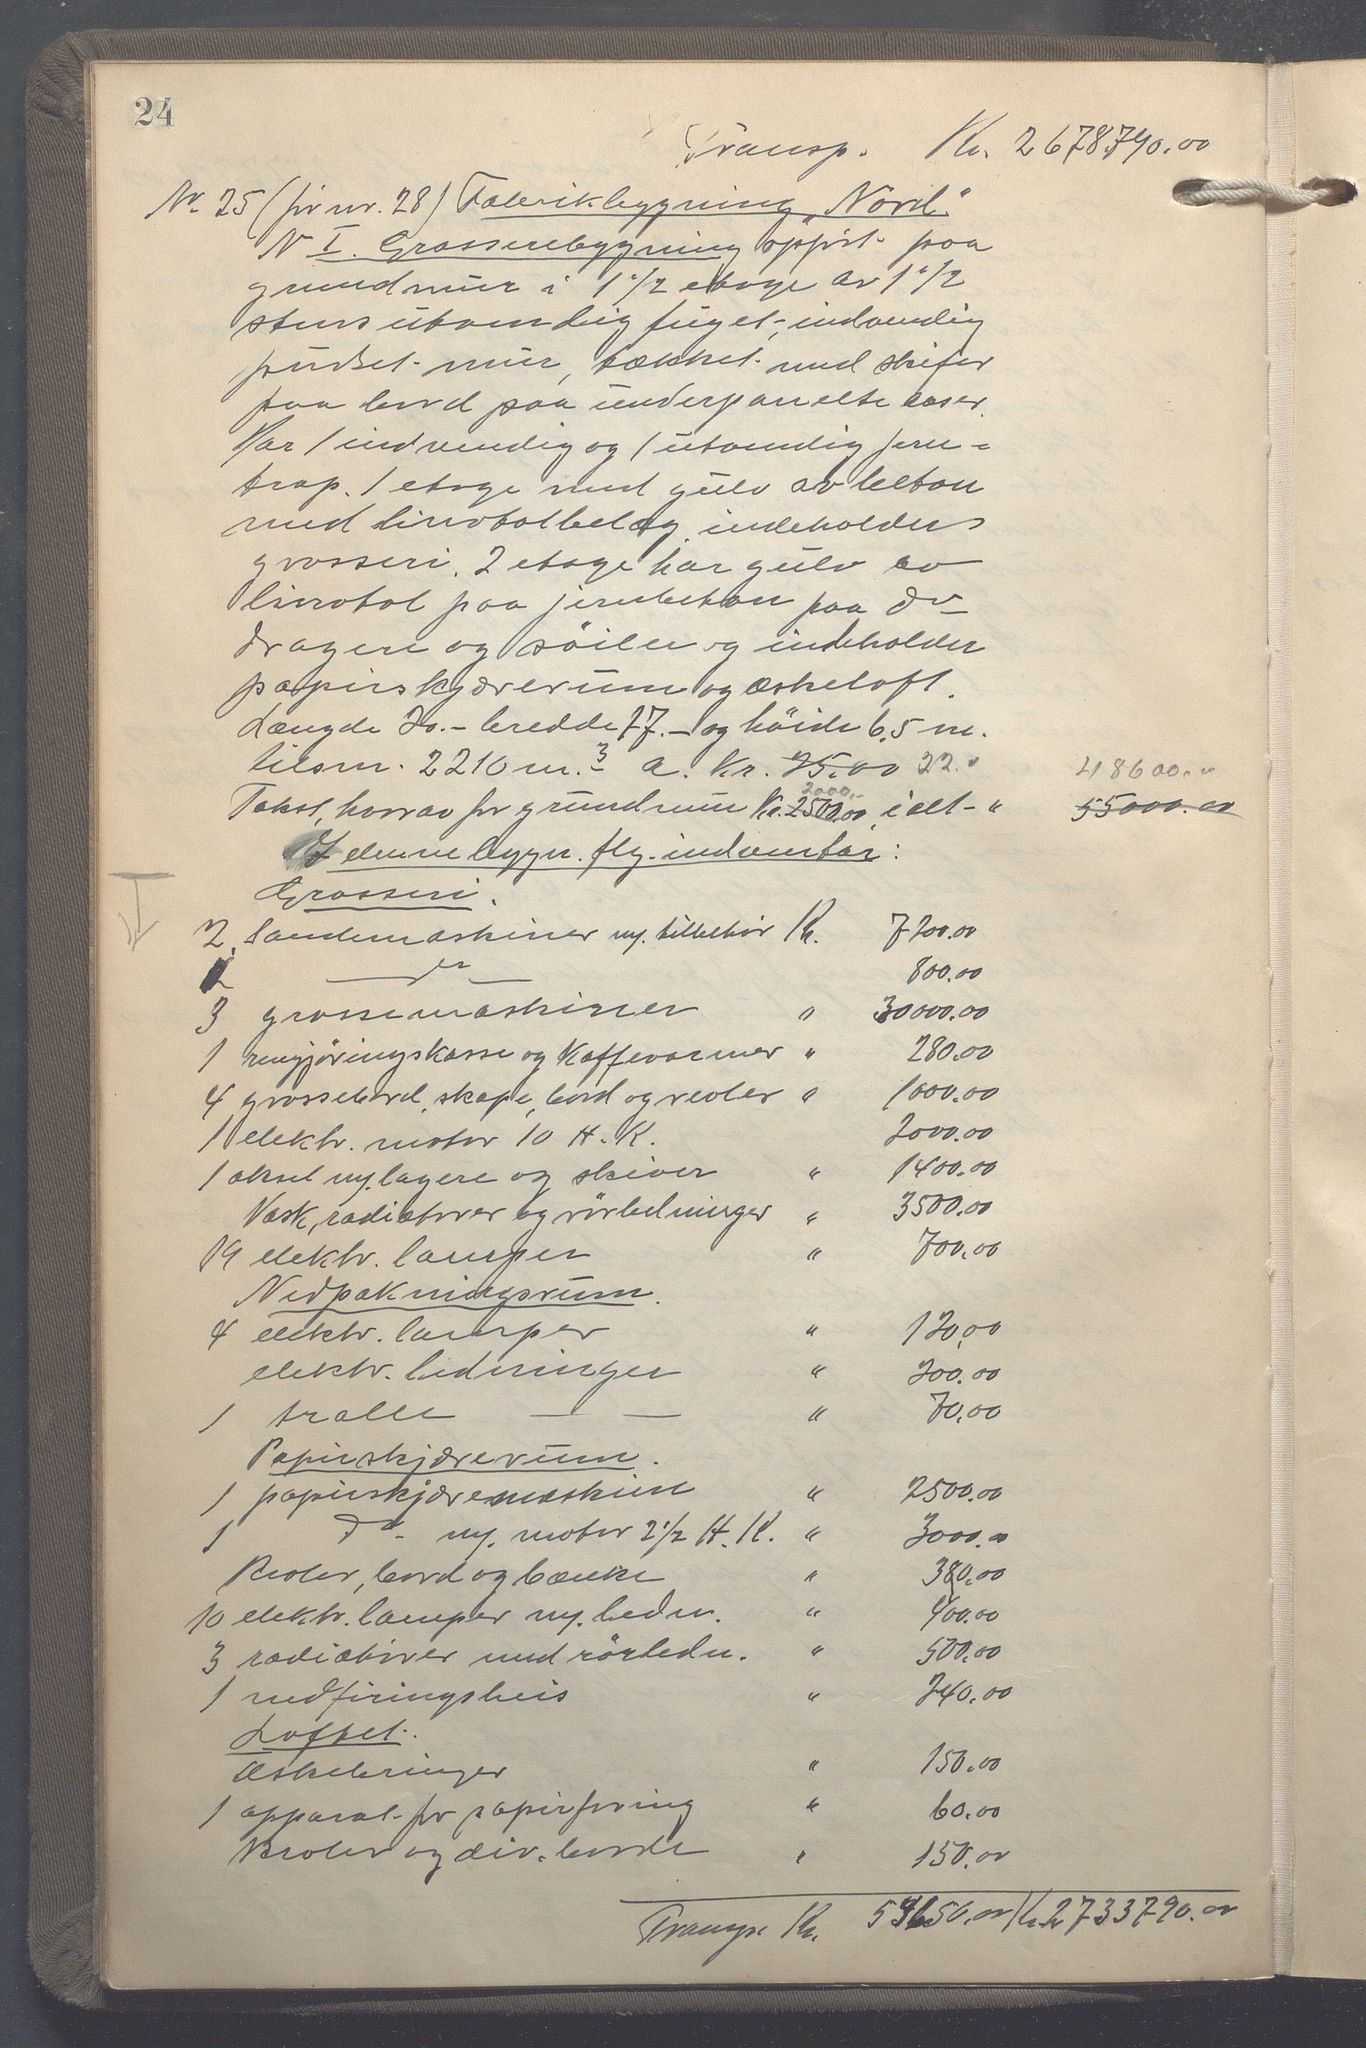 24
Transp. Kr. 2678790.00
Nr. 25 (før nr. 28) Fabrikbygning "Nord"
N I. Grosserebygning opført paa
grundmur i 1 1/2 etage av 1 1/2
stens utvendig fuget, indvendig
pudset mur, tækket med skifer
paa bord paa underpanelte aaser.
Har 1 indvendig og 1 utvendig jern-
trap. 1 etage med gulv av beton
med linotolbelæg indeholder
grosseri. 2 etage har gulv av
linotol paa jernbeton paa do
dragere og søiler og indeholder
papirskjærerum og æskeloft.
Længde 20.- bredde 17.- og høide 6,5 m.
tilsm. 2210 m.3 a. Kr. 25.00 22.-
Takst, hvorav for grundmur Kr. 2500.00 2000.- ialt - " 55000.00 48600.-
I denne bygn. flg. indventar:
Grosseri.
2 Sandemaskiner m. tilbehør Kr. 7200.00
1 do 800.00
3 grossemaskiner " 30000.00
1 rengjøringskasse og Kaffevarmer " 280.00
4 grossebord, skape, bord og reoler " 1000.00
1 elektr. motor 10 H.K. 2000.00
1 aksel m. lagere og skiver " 1400.00
Vask, radiatorer og rørledninger " 3500.00
19 elektr. lamper " 700.00
Nedpakningsrum.
4 elektr. lamper " 120.00
elektr. ledninger " 200.00
1 tralle — — " 70.00
Papirskjærerum.
1 papirskjæremaskin " 2500.00
1 do - m. motor 2 1/2 H.K. " 3000.00
Reoler, bord og bænke " 380.00
10 elektr. lamper m. ledn. " 400.00
3 radiatorer med rørledn. " 500.00
1 nedfiringsheis " 240.00
Loftet.
Æskebringer " 150.00
1 apparat for papirforing " 60.00
Reoler og div. borde " 150.00
Transp. Kr. 58650.00 Kr. 2733790.00